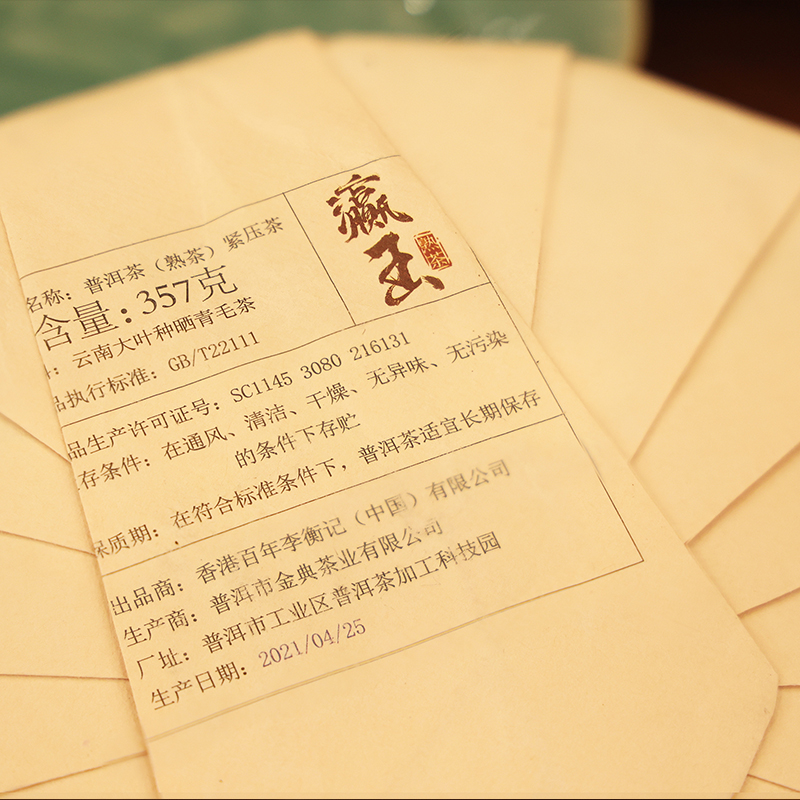 瀛玉
熟茶
名称：普洱茶（熟茶）紧压茶
含量：357克
：云南大叶种晒青毛茶
品执行标准：GB/T22111
品生产许可证号：SC1145 3080 216131
存条件：在通风、清洁、干燥、无异味、无污染
的条件下存贮
保质期：在符合标准条件下，普洱茶适宜长期保存
出品商：香港百年李衡记（中国）有限公司
生产商：普洱市金典茶业有限公司
厂址：普洱市工业区普洱茶加工科技园
生产日期：2021/04/25